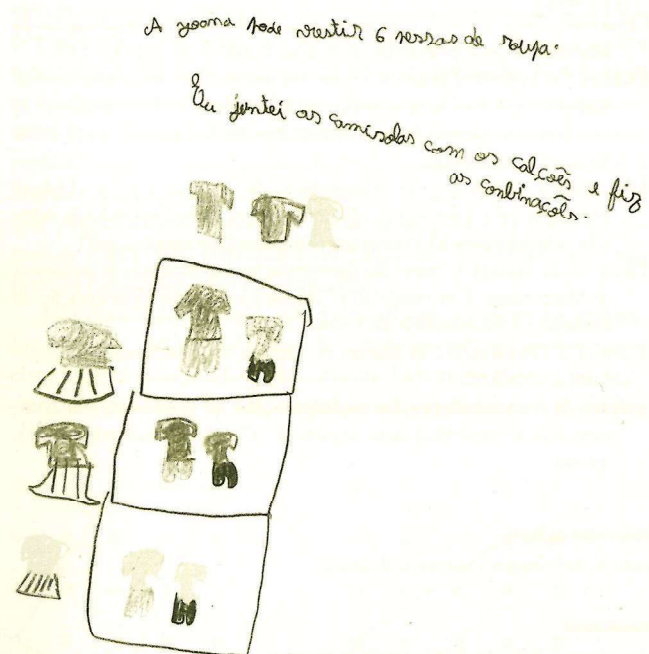 A Joana pode vestir 6 pessas de roupa.
Eu juntei as camisolas com os calções e fiz
as conbinações.